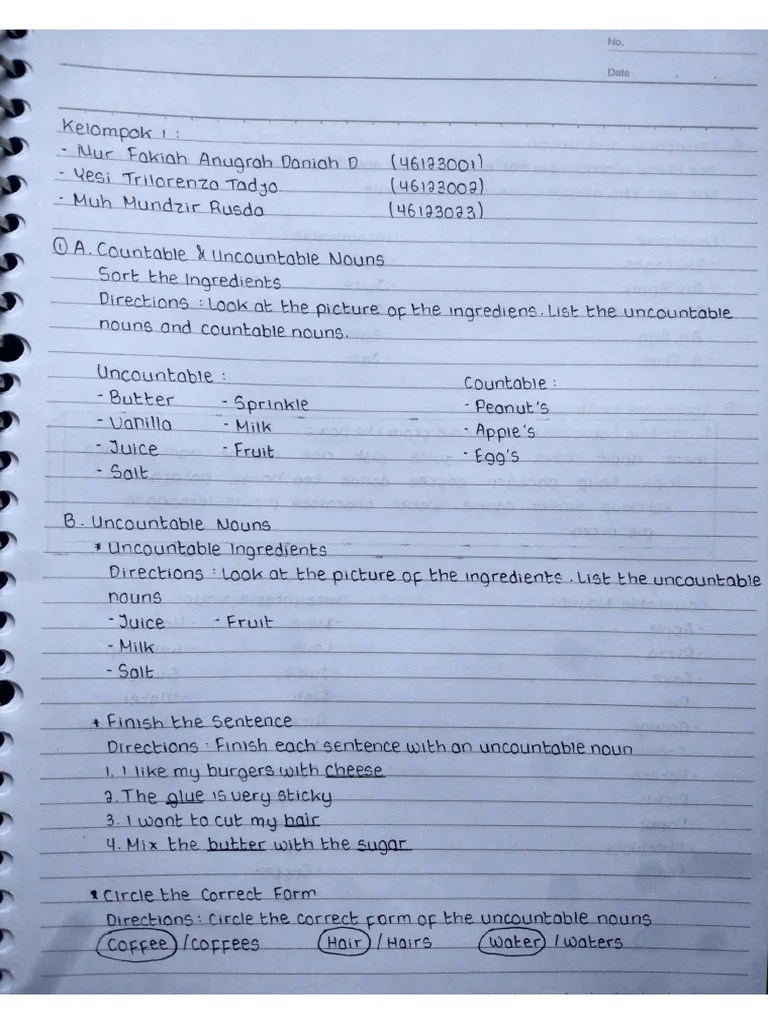 No.
Date
Kelompok 1 :
- Nur Fakiah Anugrah Daniah D (46123001)
- Yesi Trilorenza Tadjo (46123002)
- Muh Mundzir Rusda (46123023)
① A. Countable & Uncountable Nouns
Sort the Ingredients
Directions : Look at the picture of the ingrediens. List the uncountable
nouns and countable nouns.
Uncountable : Countable :
- Butter - Sprinkle - Peanut's
- Vanilla - Milk - Apple's
- Juice - Fruit - Egg's
- Salt
B. Uncountable Nouns
* Uncountable Ingredients
Directions : Look at the picture of the ingredients . List the uncountable
nouns
- Juice - Fruit
- Milk
- Salt
* Finish the Sentence
Directions : Finish each sentence with an uncountable noun
1. I like my burgers with cheese
2. The glue is very sticky
3. I want to cut my hair
4. Mix the butter with the sugar
* Circle the Correct Form
Directions : Circle the correct form of the uncountable nouns
Coffee / Coffees Hair / Hairs Water / Waters